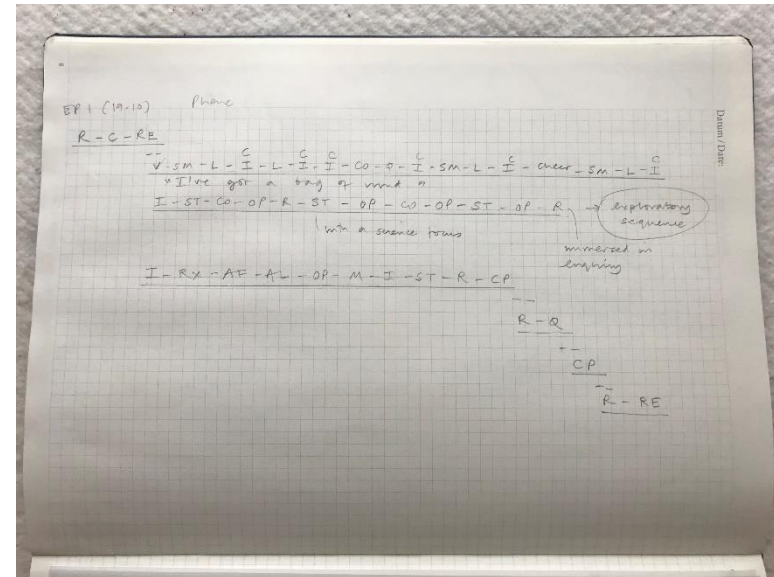 EP 1 (19-10) Phone
R - C - RE
C C C C C C
V - SM - L - I - L - I - I - CO - Q - I - SM - L - I - cheer - SM - L - I
"I've got a bag of wind"
I - ST - CO - OP - R - ST - OP - CO - OP - ST - OP - R → exploratory sequence
with a science focus
immersed in
enquiring
I - RX - AF - AL - OP - M - I - ST - R - CP
R - Q
CP
R - RE
Datum / Date: